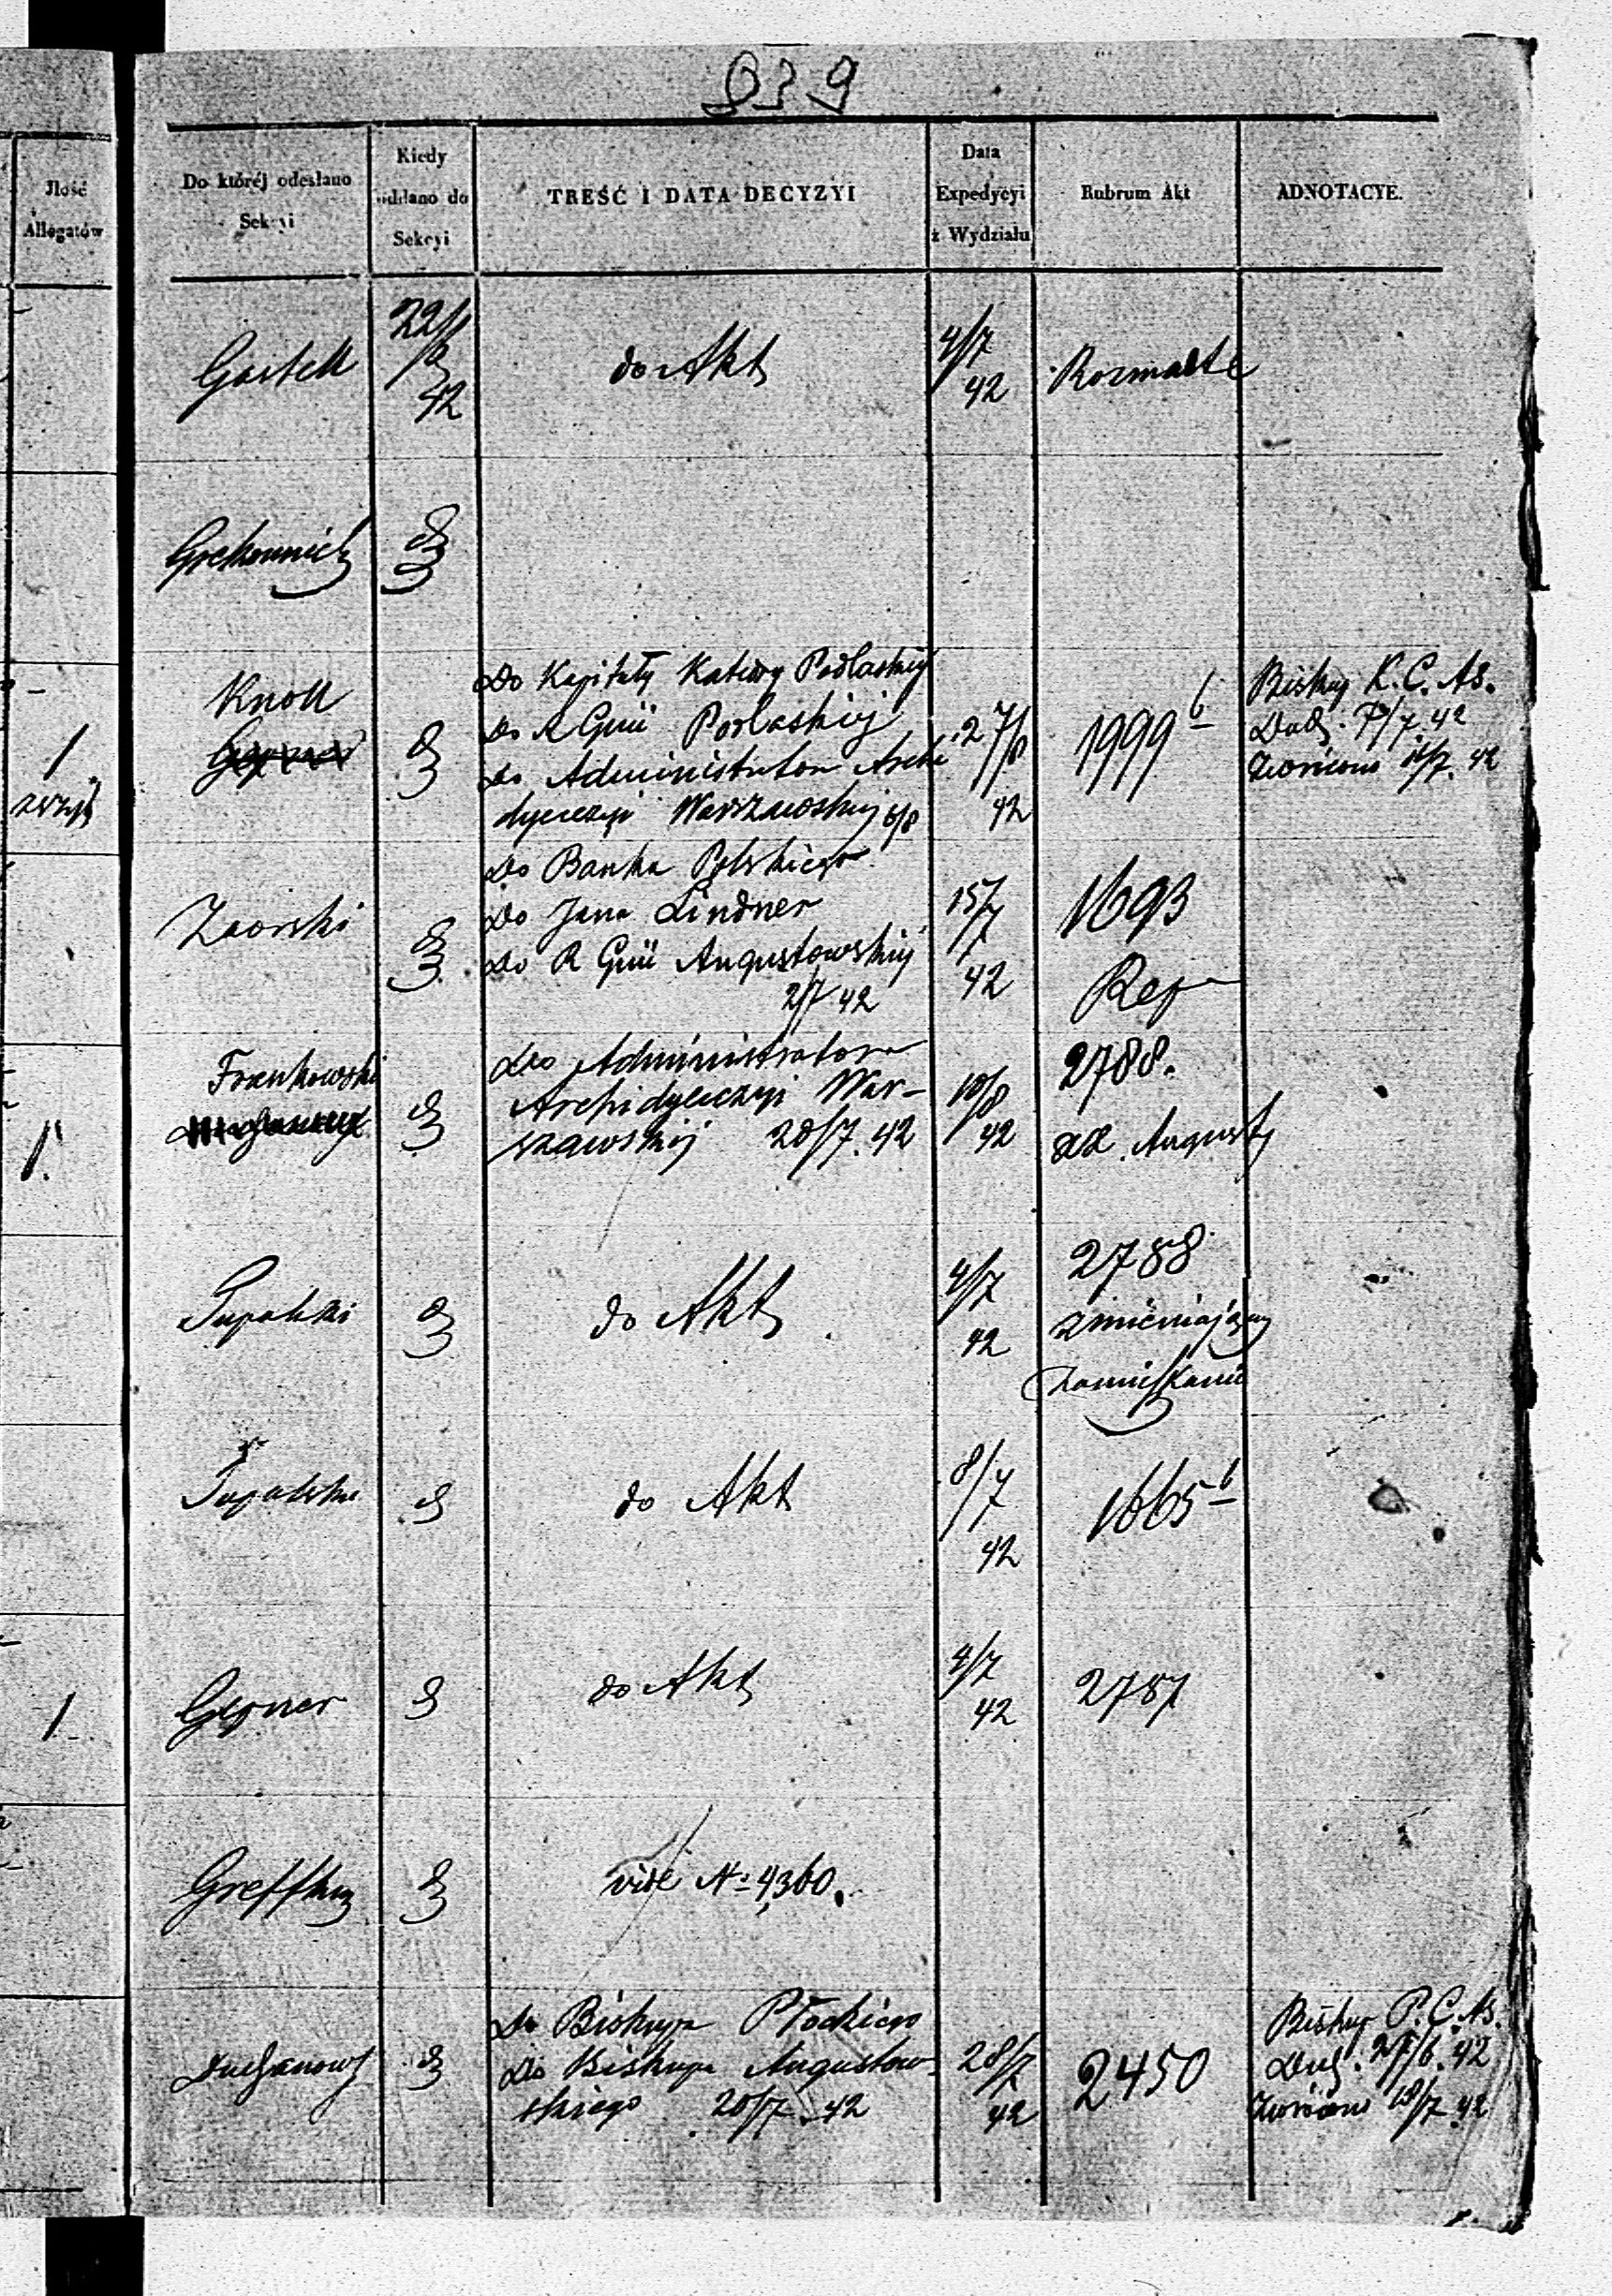 939
Jlość
Allegatów
Do któréj odesłano
Sekcyi
Kiedy
oddano do
Sekcyi
TREŚĆ I DATA DECYZYI
Data
Expedycyi
z Wydziału
Rubrum Akt
ADNOTACYE.
22/6
42
do Akt
4/7
42
Rozmaite
1
Knoll
Do Kapituły Katedry Podlaskiej
do R Gnii Podlaskiej
do Administratora Archi
dyecezyi Warszawskiej 6/8
27/8
42
1999 b
Biskup K. C. As.
Dod. 7/7 42
Zwrócono 14/7. 42
Zaorski
Do Banku Polskiego
Do Jana Lindner
Do R Gnii Augustowskiej
2/7 42
15/7
42
1693
Rep
1.
Frenkowski
do Administratora
Archidyecezyi War-
szawskiej 20/7. 42
10/8
42
2788.
ad. Augusty
Tupalski
do Akt
4/7
42
2788
zmieniający
zamieszkanie
Tupalski
do Akt
8/7
42
1665 b
1
Gerner
do Akt
4/7
42
2787
vide N: 4360.
Do Biskupa Płockiego
Do Biskupa Augustow-
skiego 20/7. 42
28/7
42
2450
Biskup P. C. As.
Dod. 27/6. 42
Zwrócono 18/7. 42